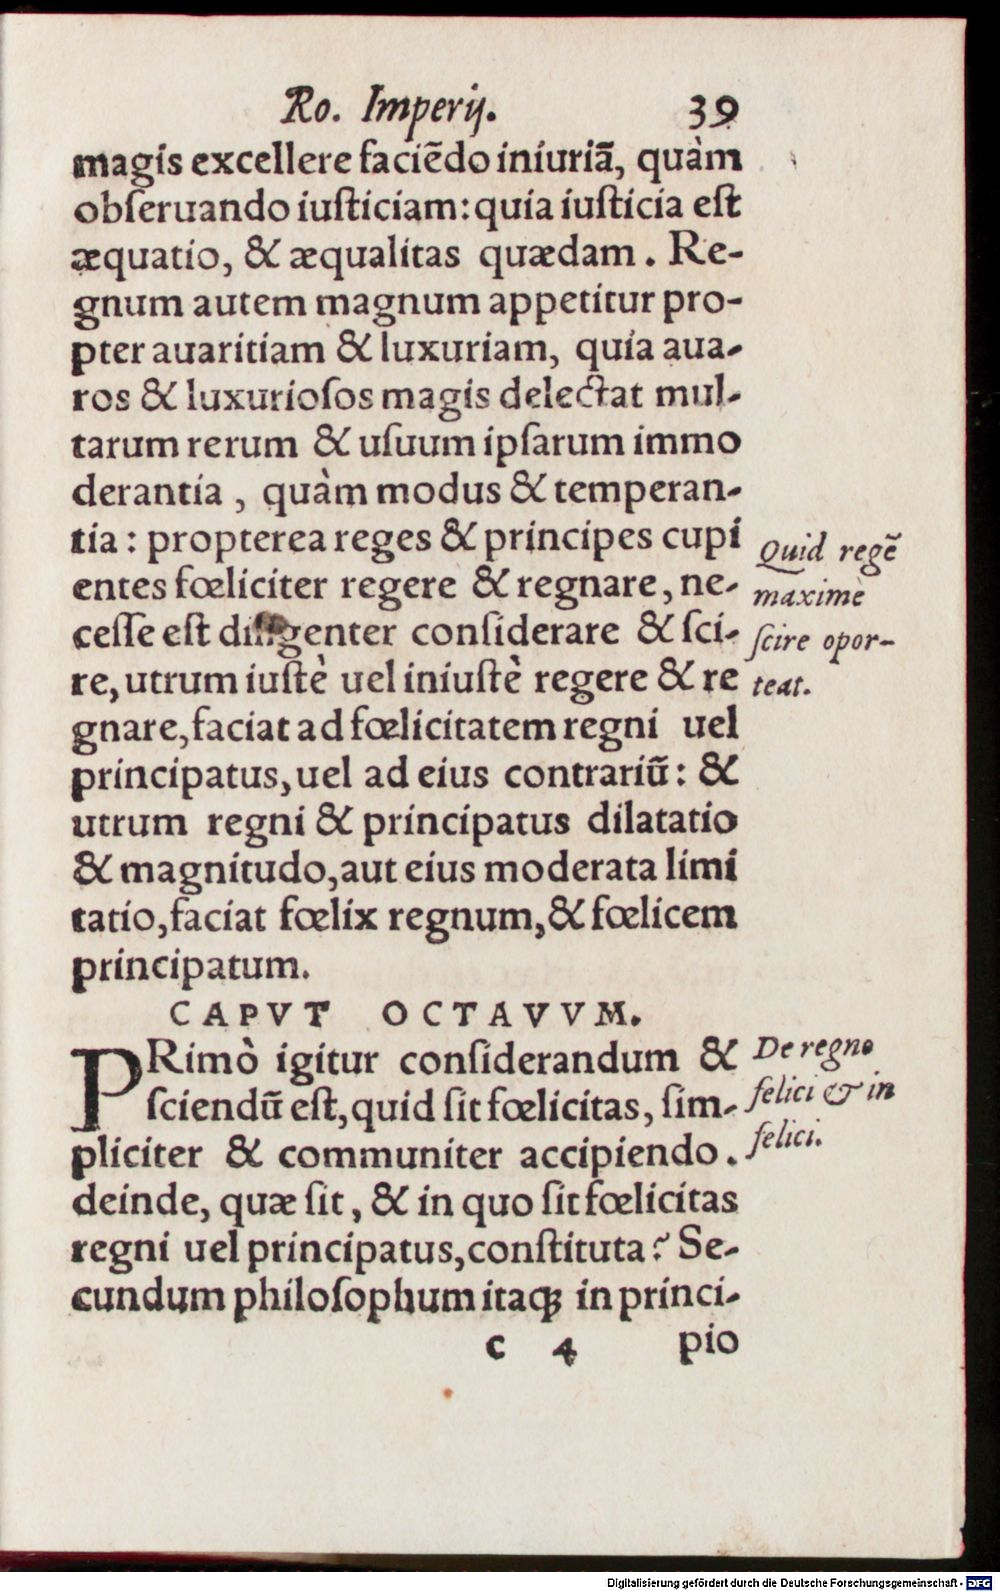 Ro. Imperij. 39
magis excellere faciẽdo iniuriã, quàm
obſeruando iuſticiam: quia iuſticia eſt
æquatio, & æqualitas quædam. Re-
gnum autem magnum appetitur pro-
pter auaritiam & luxuriam, quia aua-
ros & luxurioſos magis delectat mul-
tarum rerum & uſuum ipſarum immo
derantia, quàm modus & temperan-
tia: propterea reges & principes cupi
entes fœliciter regere & regnare, ne-
ceſſe eſt diligenter conſiderare & ſci-
re, utrum iuſtè uel iniuſtè regere & re
gnare, faciat ad fœlicitatem regni uel
principatus, uel ad eius contrariũ: &
utrum regni & principatus dilatatio
& magnitudo, aut eius moderata limi
tatio, faciat fœlix regnum, & fœlicem
principatum.
Quid regẽ
maximè
ſcire opor-
teat.
CAPVT OCTAVVM.
PRimò igitur conſiderandum &
ſciendũ eſt, quid ſit fœlicitas, ſim-
pliciter & communiter accipiendo.
deinde, quæ ſit, & in quo ſit fœlicitas
regni uel principatus, conſtituta? Se-
cundum philoſophum itaq; in princi-
De regno
felici & in
felici.
c 4 pio
Digitalisierung gefördert durch die Deutsche Forschungsgemeinschaft - DFG